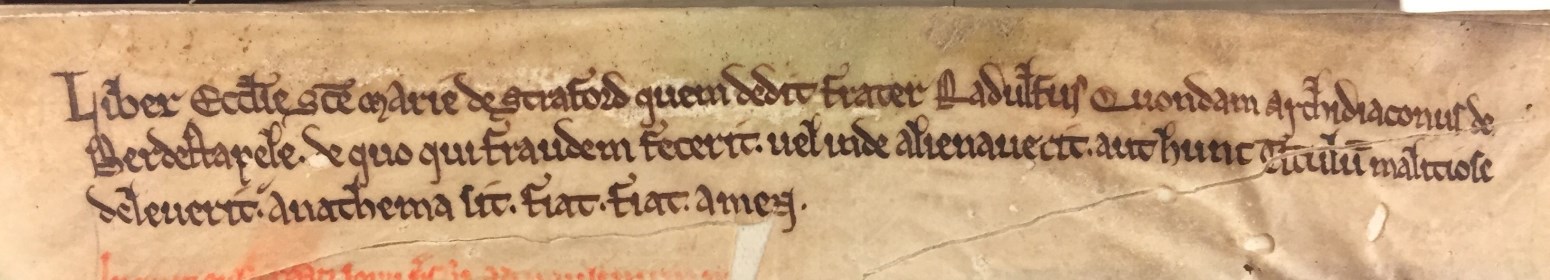 Liber Eccl̄ie sc̄e Marie de Straford quem dedit frater Radulfus Quondam archidiaconus de
Berdestapele. De quo qui fraudem fecerit. uel inde alienauerit. aut hunc Titulū malitiose
deleuerit. anathema sit. fiat. fiat. amen.